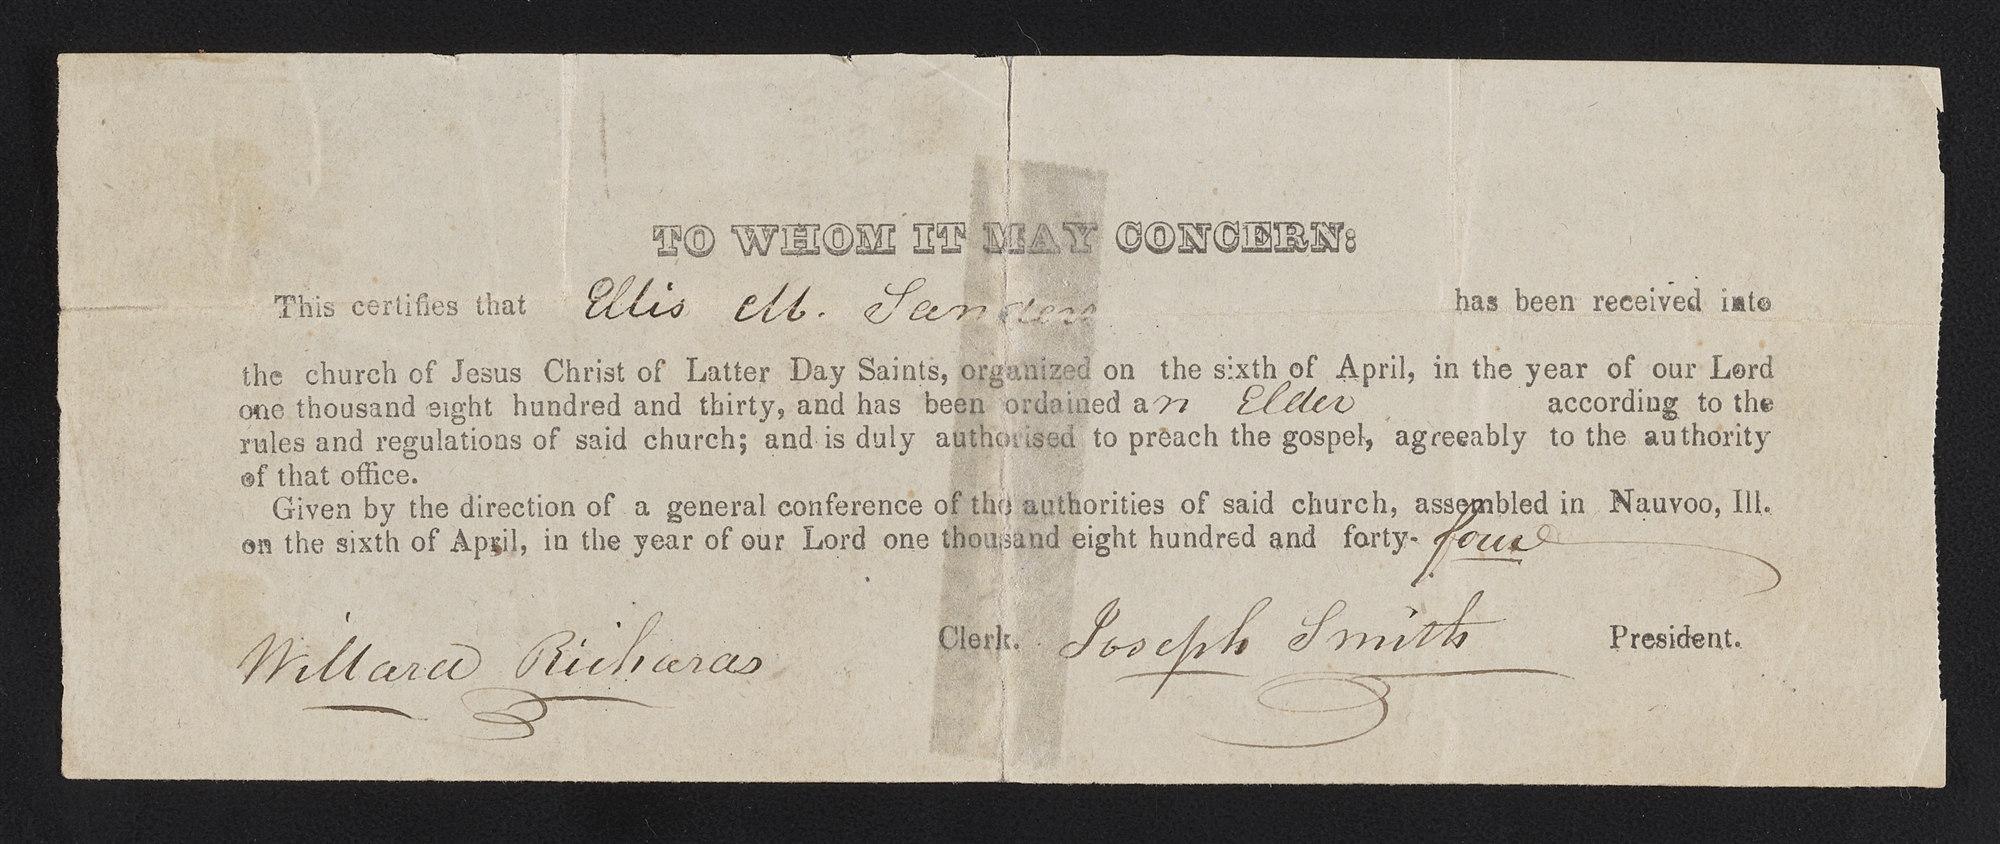 TO WHOM IT MAY CONCERN:
This certifies that Ellis M. Sanders has been received into
the church of Jesus Christ of Latter Day Saints, organized on the sixth of April, in the year of our Lord
one thousand eight hundred and thirty, and has been ordained an Elder according to the
rules and regulations of said church; and is duly authorised to preach the gospel, agreeably to the authority
of that office.
Given by the direction of a general conference of the authorities of said church, assembled in Nauvoo, Ill.
on the sixth of April, in the year of our Lord one thousand eight hundred and forty-four
Willard Richards Clerk. Joseph Smith President.